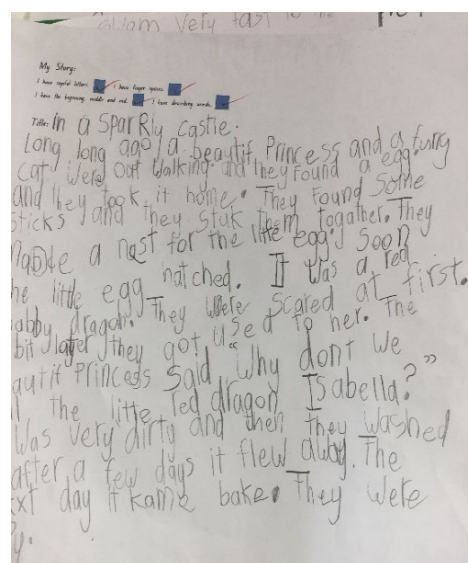 swam very fast to the
My Story:
I have capital letters. I have finger spaces.
I have the beginning, middle and end. I have describing words.
Title: In a SparRly castle.
Long long ago a beautif Princess and a funy
cat were out walking. and they Found a egg.
and they took it home. They Found Some
sticks and they stuk them togather. They
made a nest for the litte egg. Soon
he little egg hatched. It was a red
abby dragon. They were scared at first.
bit later they got used to her. The
autif Princess said "Why dont we
the litte red dragon Isabella?"
Was very dirty and then They washed
after a few days it flew away. The
xt day it kame bake. They were
y.